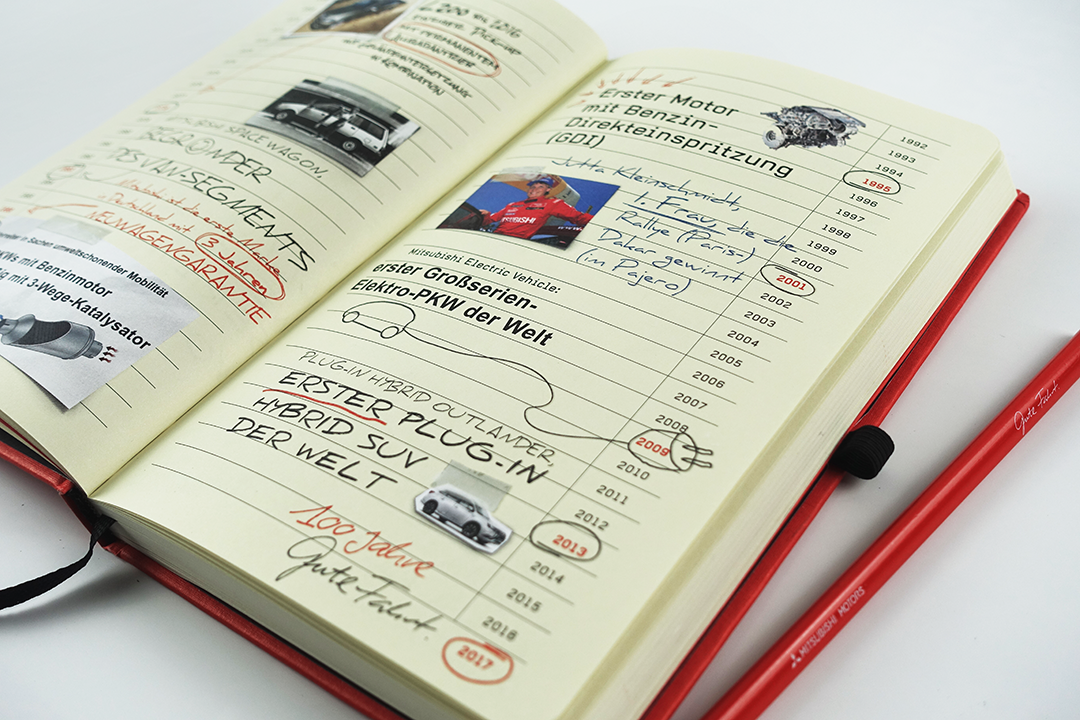 200 BIS 2016
PICK-UP
MIT PERMANENTEM
IN KOMBINATION
SPACE WAGON,
BEGRÜNDER
DES VAN-SEGMENTS
Mitsubishi ist die erste Marke
in Deutschland mit 3 Jahren
NEUWAGENGARANTIE
in Sachen umweltschonender Mobilität
PKWs mit Benzinmotor
mit 3-Wege-Katalysator
Erster Motor
mit Benzin-
Direkteinspritzung
(GDI)
Jutta Kleinschmidt,
1. Frau, die die
Rallye (Paris)
Dakar gewinnt
(im Pajero)
Mitsubishi Electric Vehicle:
erster Großserien-
Elektro-PKW der Welt
PLUG-IN HYBRID OUTLANDER,
ERSTER PLUG-IN
HYBRID SUV
DER WELT
100 Jahre
Gute Fahrt.
1992
1993
1994
1995
1996
1997
1998
1999
2000
2001
2002
2003
2004
2005
2006
2007
2008
2009
2010
2011
2012
2013
2014
2015
2016
2017
Gute Fahrt.
MITSUBISHI MOTORS